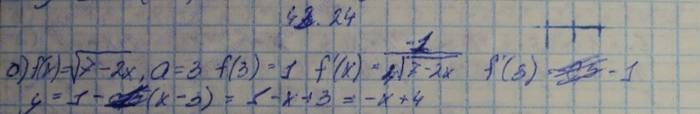 43.24
б) f(x) = √7-2x, a = 3 f(3) = 1 f'(x) = -1/√7-2x f'(3) = -1
y = 1 - (x-3) = 1-x+3 = -x+4